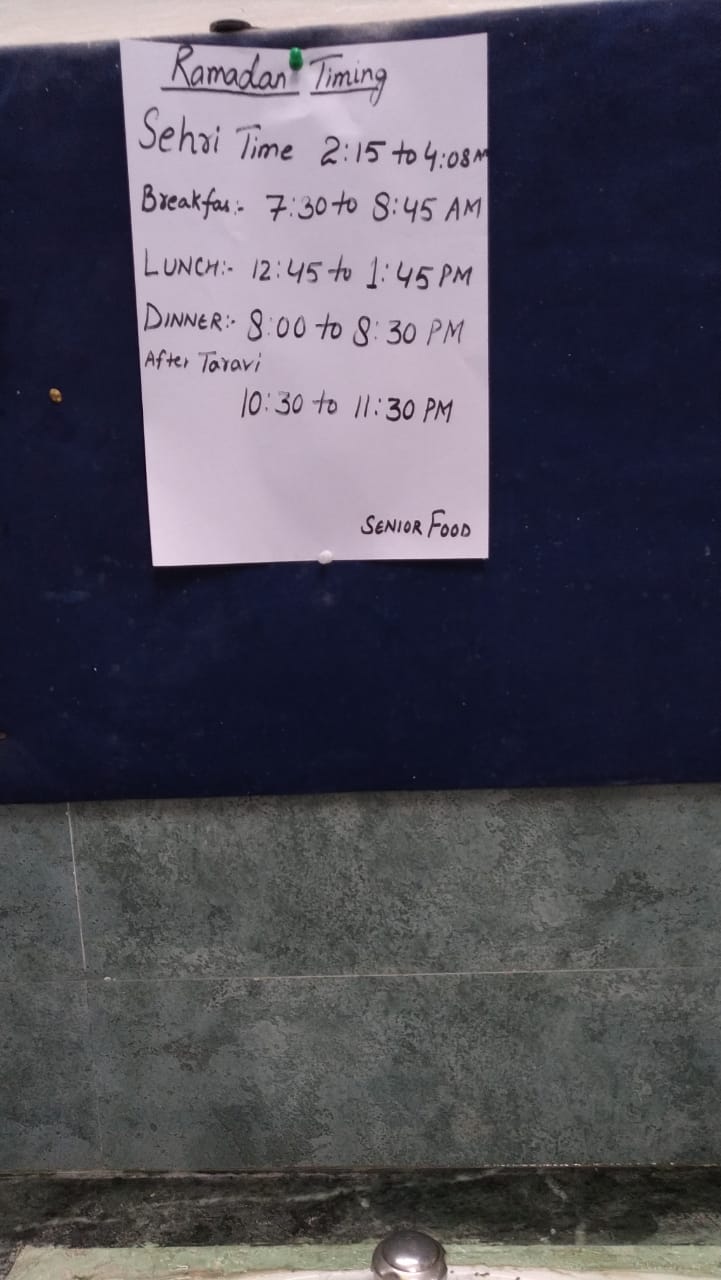 Ramadan Timing
Sehri Time 2:15 to 4:08 AM
Breakfas:- 7:30 to 8:45 AM
LUNCH:- 12:45 to 1:45 PM
DINNER:- 8:00 to 8:30 PM
After Taravi
10:30 to 11:30 PM
SENIOR FOOD